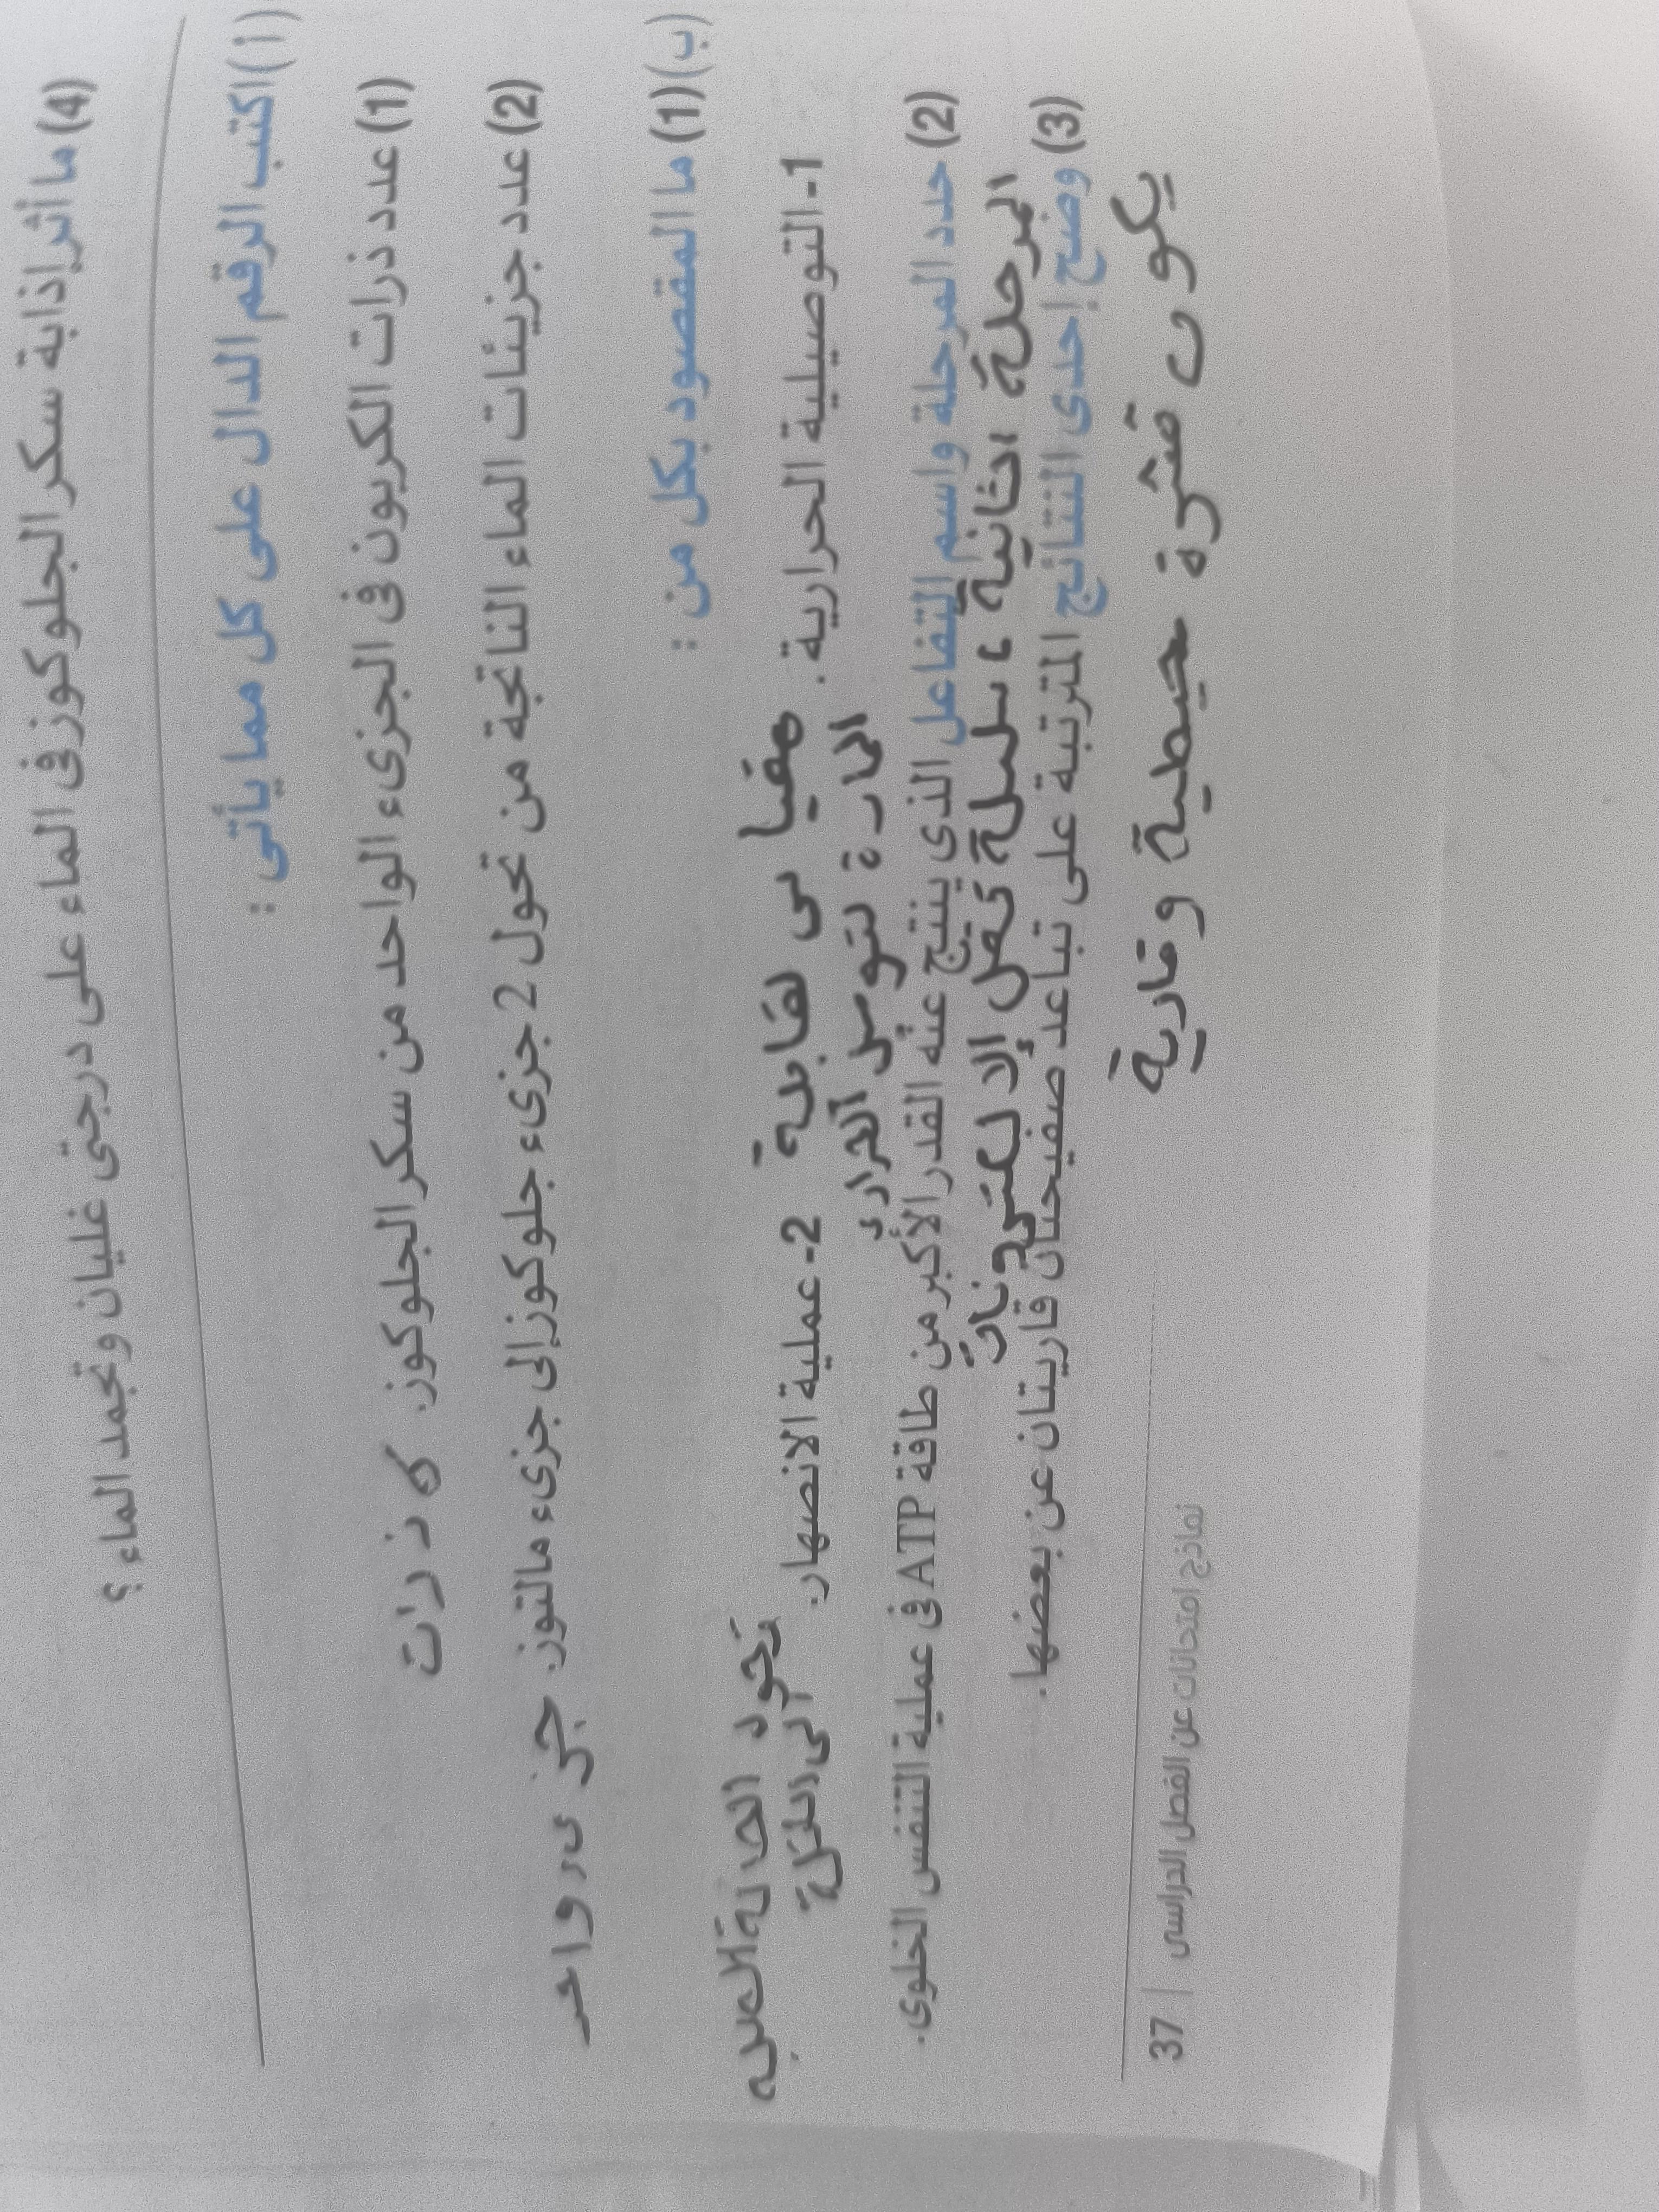 (4) ما أثر إذابة سكر الجلوكوز فى الماء على درجتى غليان وتجمد الماء ؟
(أ) اكتب الرقم الدال على كل مما يأتى :
(1) عدد ذرات الكربون فى الجزىء الواحد من سكر الجلوكوز. ذرات
(2) عدد جزيئات الماء الناتجة من تحول 2 جزىء جلوكوز إلى جزىء مالتوز. جزىء واحد
(ب) (1) ما المقصود بكل من :
1- التوصيلية الحرارية. مقياس لقابلية المادة لتوصيل الحرارة
2- عملية الانصهار. تحول المادة من الحالة الصلبة إلى السائلة
(2) حدد المرحلة واسم التفاعل الذى ينتج عنه القدر الأكبر من طاقة ATP فى عملية التنفس الخلوى.
المرحلة الثانية سلسلة نقل الإلكترونات
(3) وضح إحدى النتائج المترتبة على تباعد صفيحتان قاريتان عن بعضها.
يكون قشرة محيطية وقارية
37 | نماذج امتحانات عن الفصل الدراسى